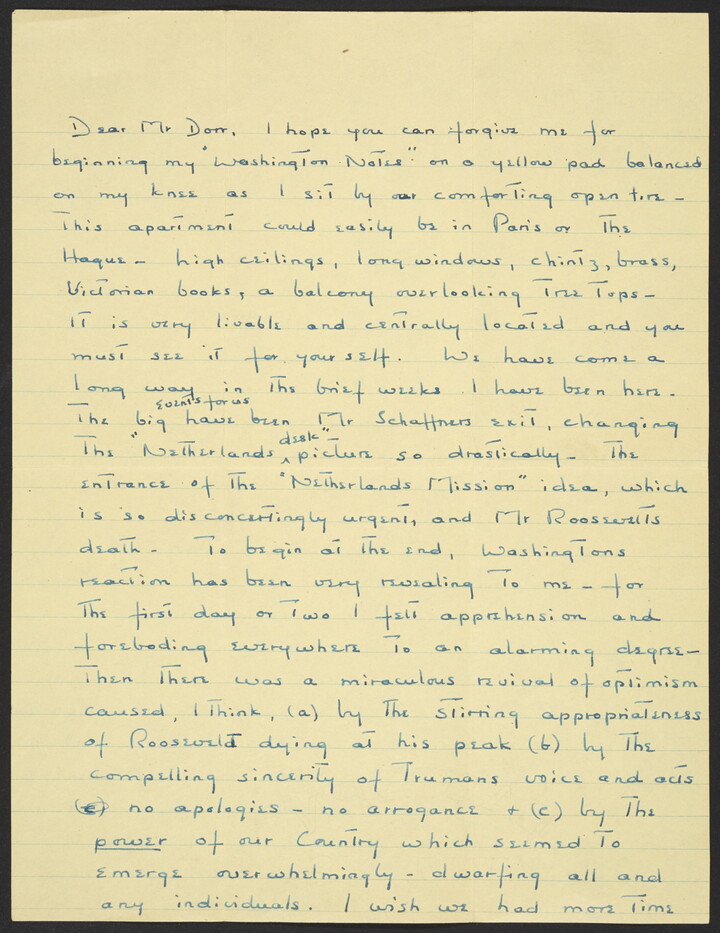 Dear Mr Dorr, I hope you can forgive me for
beginning my "Washington Notes" on a yellow pad balanced
on my knee as I sit by our comforting open fire –
This apartment could easily be in Paris or The
Hague – high ceilings, long windows, chintz, brass,
Victorian books, a balcony overlooking Tree Tops –
It is very livable and centrally located and you
must see it for yourself. We have come a
long way in the brief weeks I have been here.
events for us
The big have been Mr Schaffners exit, changing
desk"
The "Netherlands picture so drastically – The
entrance of the "Netherlands Mission" idea, which
is so disconcertingly urgent, and Mr Roosevelts
death – To begin at the end, Washingtons
reaction has been very revealing to me – for
the first day or two I felt apprehension and
foreboding everywhere to an alarming degree –
Then there was a miraculous revival of optimism
caused, I think, (a) by the stirring appropriateness
of Roosevelt dying at his peak (b) by the
compelling sincerity of Trumans voice and acts
(c) no apologies – no arrogance + (c) by the
power of our Country which seemed to
emerge overwhelmingly – dwarfing all and
any individuals. I wish we had more time